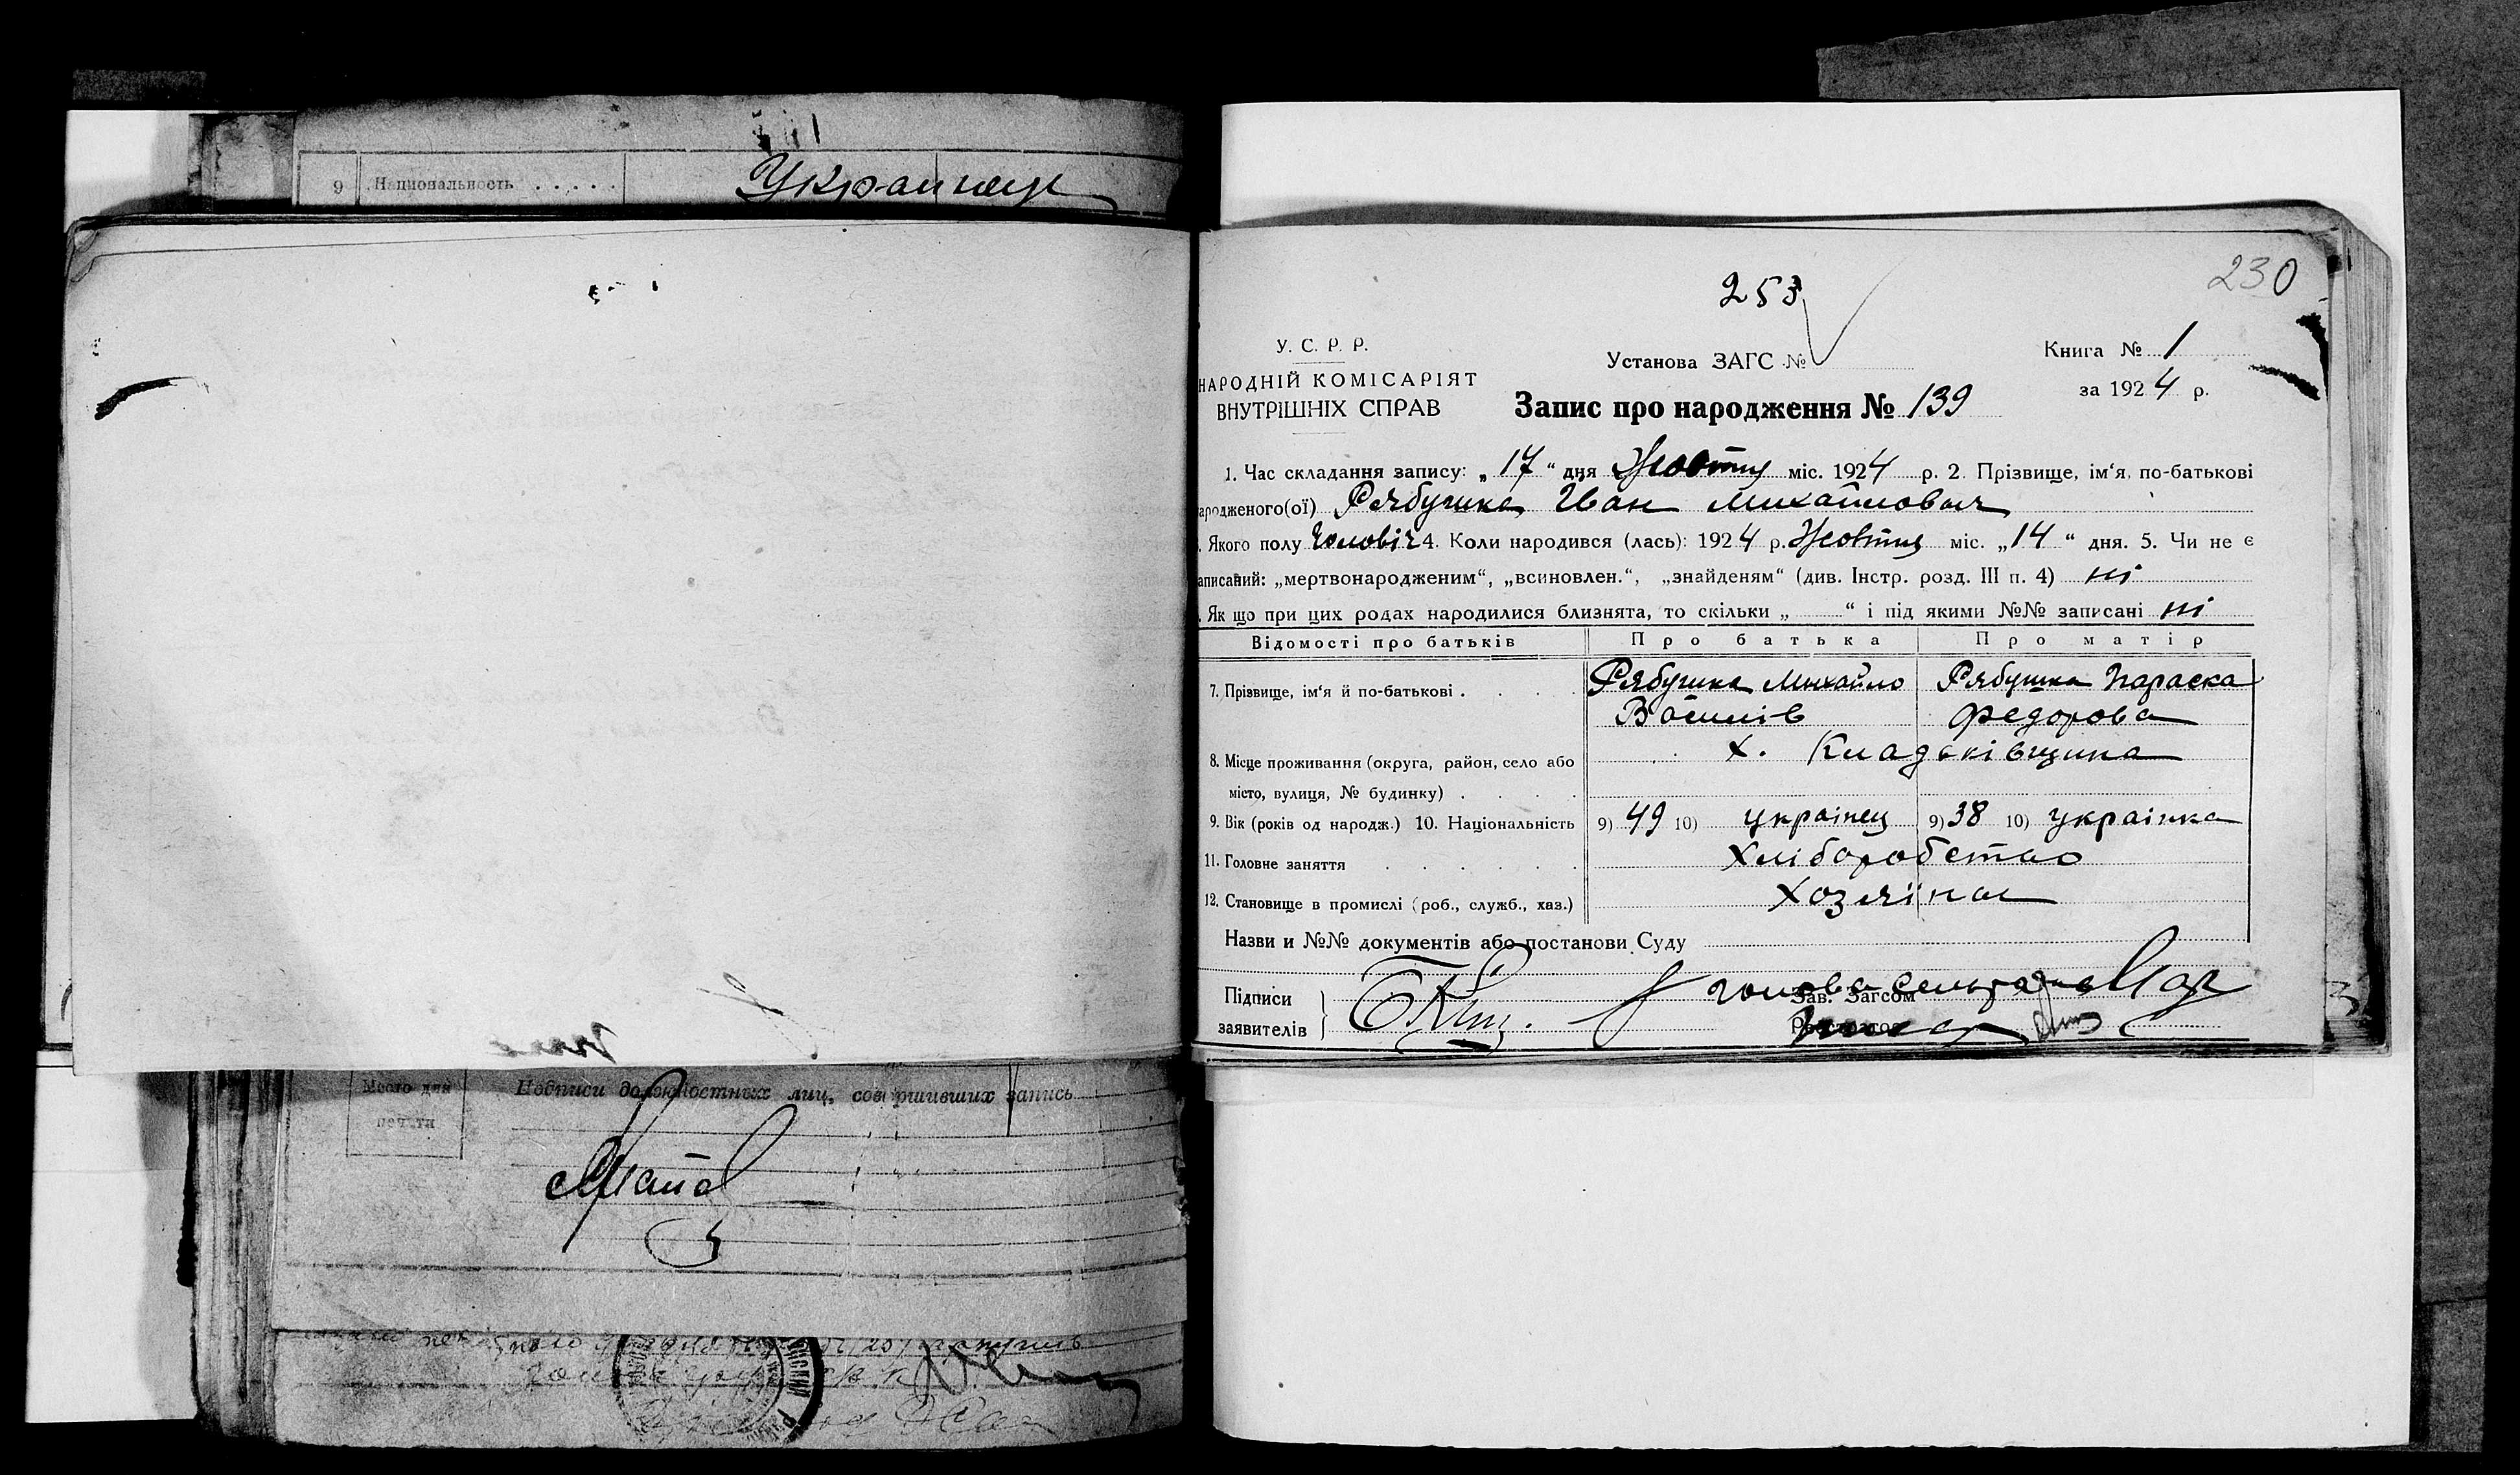 9 Национальность . . . . . Украинец
230
253
У. С. Р. Р.
НАРОДНІЙ КОМІСАРІЯТ
ВНУТРІШНІХ СПРАВ
Установа ЗАГС №
Книга № 1
за 1924 р.
Запис про народження № 139
1. Час складання запису: „17“ дня Жовтня міс. 1924 р. 2. Прізвище, ім‘я, по-батькові
ародженого(ої) Рябушка Іван Михайлович
. Якого полу Чоловіч 4. Коли народився (лась): 1924 р. Жовтня міс. „14“ дня. 5. Чи не є
аписаний: „мертвонародженим“, „всиновлен.“, „знайденям“ (див. Інстр. розд. III п. 4) ні
. Як що при цих родах народилися близнята, то скільки „ “ і під якими №№ записані ні
Відомості про батьків Про батька Про матір
7. Прізвище, ім‘я й по-батькові . . . . Рябушка Михайло Рябушка Параска
Василів Федорова
8. Місце проживання (округа, район, село або х. Кладьківщина
місто, вулиця, № будинку) . . . .
9. Вік (років од народж.) 10. Національність 9) 49 10) українец 9) 38 10) українка
11. Головне заняття . . . . . . Хліборобство
12. Становище в промислі (роб., служб., хаз.) Хозяїн
Назви и №№ документів або постанови Суду
Підписи
заявителів
Голова сельради
Зав. Загсом
Реєстратор
Место для
печати
Подписи должностных лиц, совершивших запись